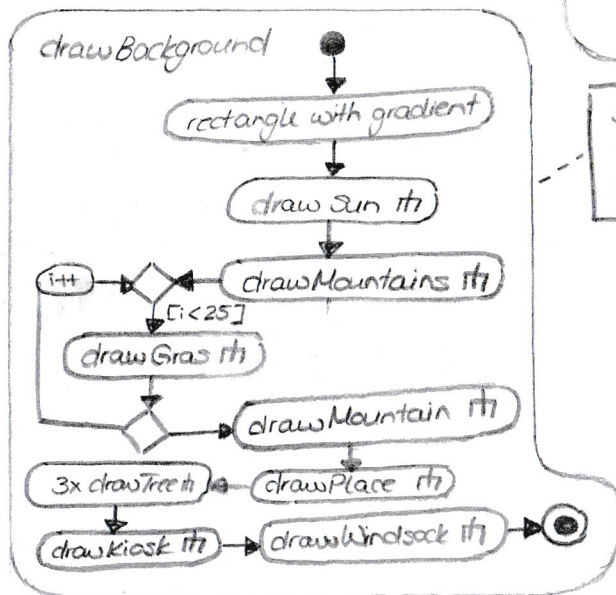 drawBackground
rectangle with gradient
draw Sun
drawMountains
i++
[i<25]
drawGras
drawMountain
drawPlace
3x drawTree
drawKiosk
drawWindsock